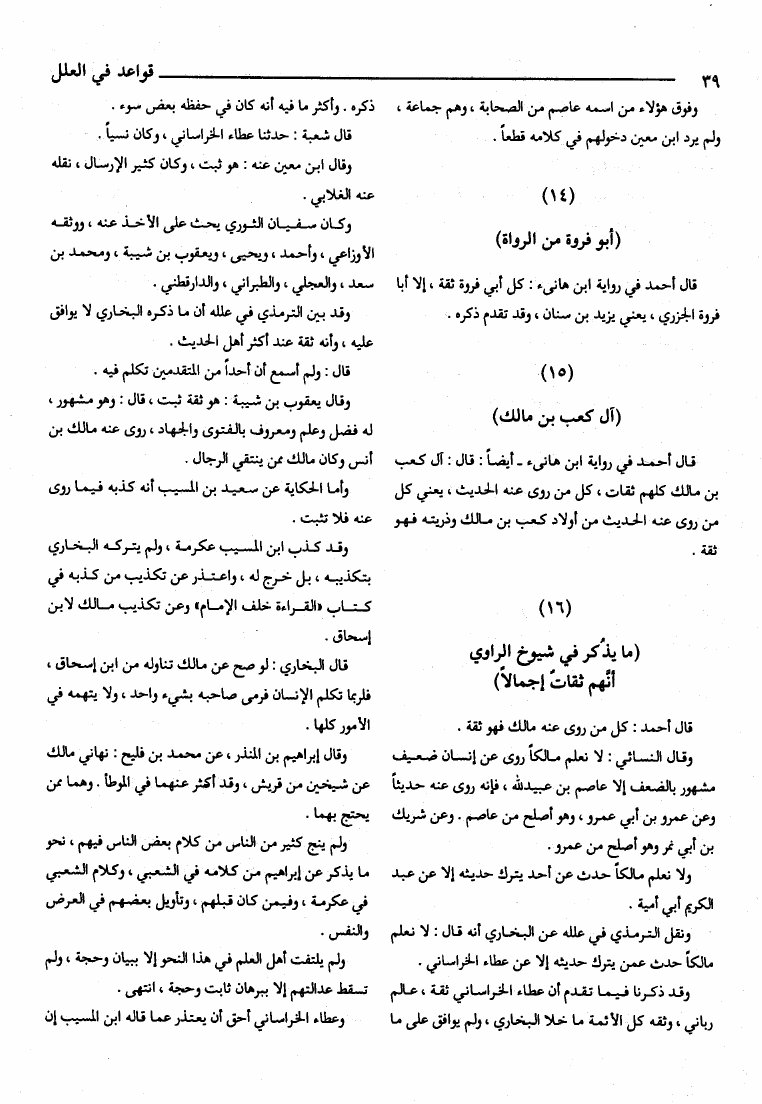 ٣٩ قواعد في العلل
وفوق هؤلاء من اسمه عاصم من الصحابة ، وهم جماعة ،
ولم يرد ابن معين دخولهم في كلامه قطعاً .
(١٤)
(أبو فروة من الرواة)
قال أحمد في رواية ابن هانىء : كل أبي فروة ثقة ، إلا أبا
فروة الجزري ، يعني يزيد بن سنان ، وقد تقدم ذكره .
(١٥)
(آل كعب بن مالك)
قال أحمد في رواية ابن هانىء ـ أيضاً : قال : آل كعب
بن مالك كلهم ثقات ، كل من روى عنه الحديث ، يعني كل
من روى عنه الحديث من أولاد كعب بن مالك وذريته فهو
ثقة .
(١٦)
(ما يذُكر في شيوخ الراوي
أنَّهم ثقاتٌ إجمالاً)
قال أحمد : كل من روى عنه مالك فهو ثقة .
وقال النسائي : لا نعلم مالكاً روى عن إنسان ضعيف
مشهور بالضعف إلا عاصم بن عبيدالله ، فإنه روى عنه حديثاً
وعن عمرو بن أبي عمرو ، وهو أصلح من عاصم . وعن شريك
بن أبي نمر وهو أصلح من عمرو .
ولا نعلم مالكاً حدث عن أحد يترك حديثه إلا عن عبد
الكريم أبي أمية .
ونقل الترمذي في علله عن البخاري أنه قال : لا نعلم
مالكاً حدث عمن يترك حديثه إلا عن عطاء الخراساني .
وقد ذكرنا فيما تقدم أن عطاء الخراساني ثقة ، عالم
رباني ، وثقه كل الأئمة ما خلا البخاري ، ولم يوافق على ما
ذكره . وأكثر ما فيه أنه كان في حفظه بعض سوء .
قال شعبة : حدثنا عطاء الخراساني ، وكان نسياً .
وقال ابن معين عنه : هو ثبت ، وكان كثير الإرسال ، نقله
عنه الغلابي .
وكان سفيان الثوري يحث على الأخذ عنه ، ووثقه
الأوزاعي ، وأحمد ، ويحيى ، ويعقوب بن شيبة ، ومحمد بن
سعد ، والعجلي ، والطبراني ، والدارقطني .
وقد بين الترمذي في علله أن ما ذكره البخاري لا يوافق
عليه ، وأنه ثقة عند أكثر أهل الحديث .
قال : ولم أسمع أن أحداً من المتقدمين تكلم فيه .
وقال يعقوب بن شيبة : هو ثقة ثبت ، قال : وهو مشهور ،
له فضل وعلم ومعروف بالفتوى والجهاد ، روى عنه مالك بن
أنس وكان مالك ممن ينتقي الرجال .
وأما الحكاية عن سعيد بن المسيب أنه كذبه فيما روى
عنه فلا تثبت .
وقد كذب ابن المسيب عكرمة ، ولم يتركه البخاري
بتكذيبه ، بل خرج له ، واعتذر عن تكذيب من كذبه في
كتاب «القراءة خلف الإمام» وعن تكذيب مالك لابن
إسحاق .
قال البخاري : لو صح عن مالك تناوله من ابن إسحاق ،
فلربما تكلم الإنسان فرمى صاحبه بشيء واحد ، ولا يتهمه في
الأمور كلها .
وقال إبراهيم بن المنذر ، عن محمد بن فليح : نهاني مالك
عن شيخين من قريش ، وقد أكثر عنهما في الموطأ . وهما ممن
يحتج بهما .
ولم ينج كثير من الناس من كلام بعض الناس فيهم ، نحو
ما يذكر عن إبراهيم من كلامه في الشعبي ، وكلام الشعبي
في عكرمة ، وفيمن كان قبلهم ، وتأويل بعضهم في العرض
والنفس .
ولم يلتفت أهل العلم في هذا النحو إلا ببيان وحجة ، ولم
تسقط عدالتهم إلا ببرهان ثابت وحجة ، انتهى .
وعطاء الخراساني أحق أن يعتذر عما قاله ابن المسيب إن